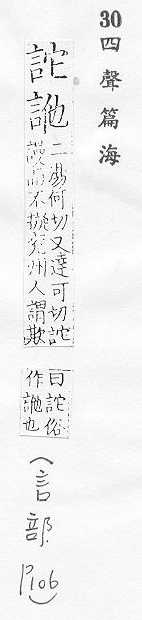 30四聲篇海
詑訑
二湯何切又達可切詑
謾而不疑兗州人謂欺
曰詑俗
作訑也
(言部 P106)